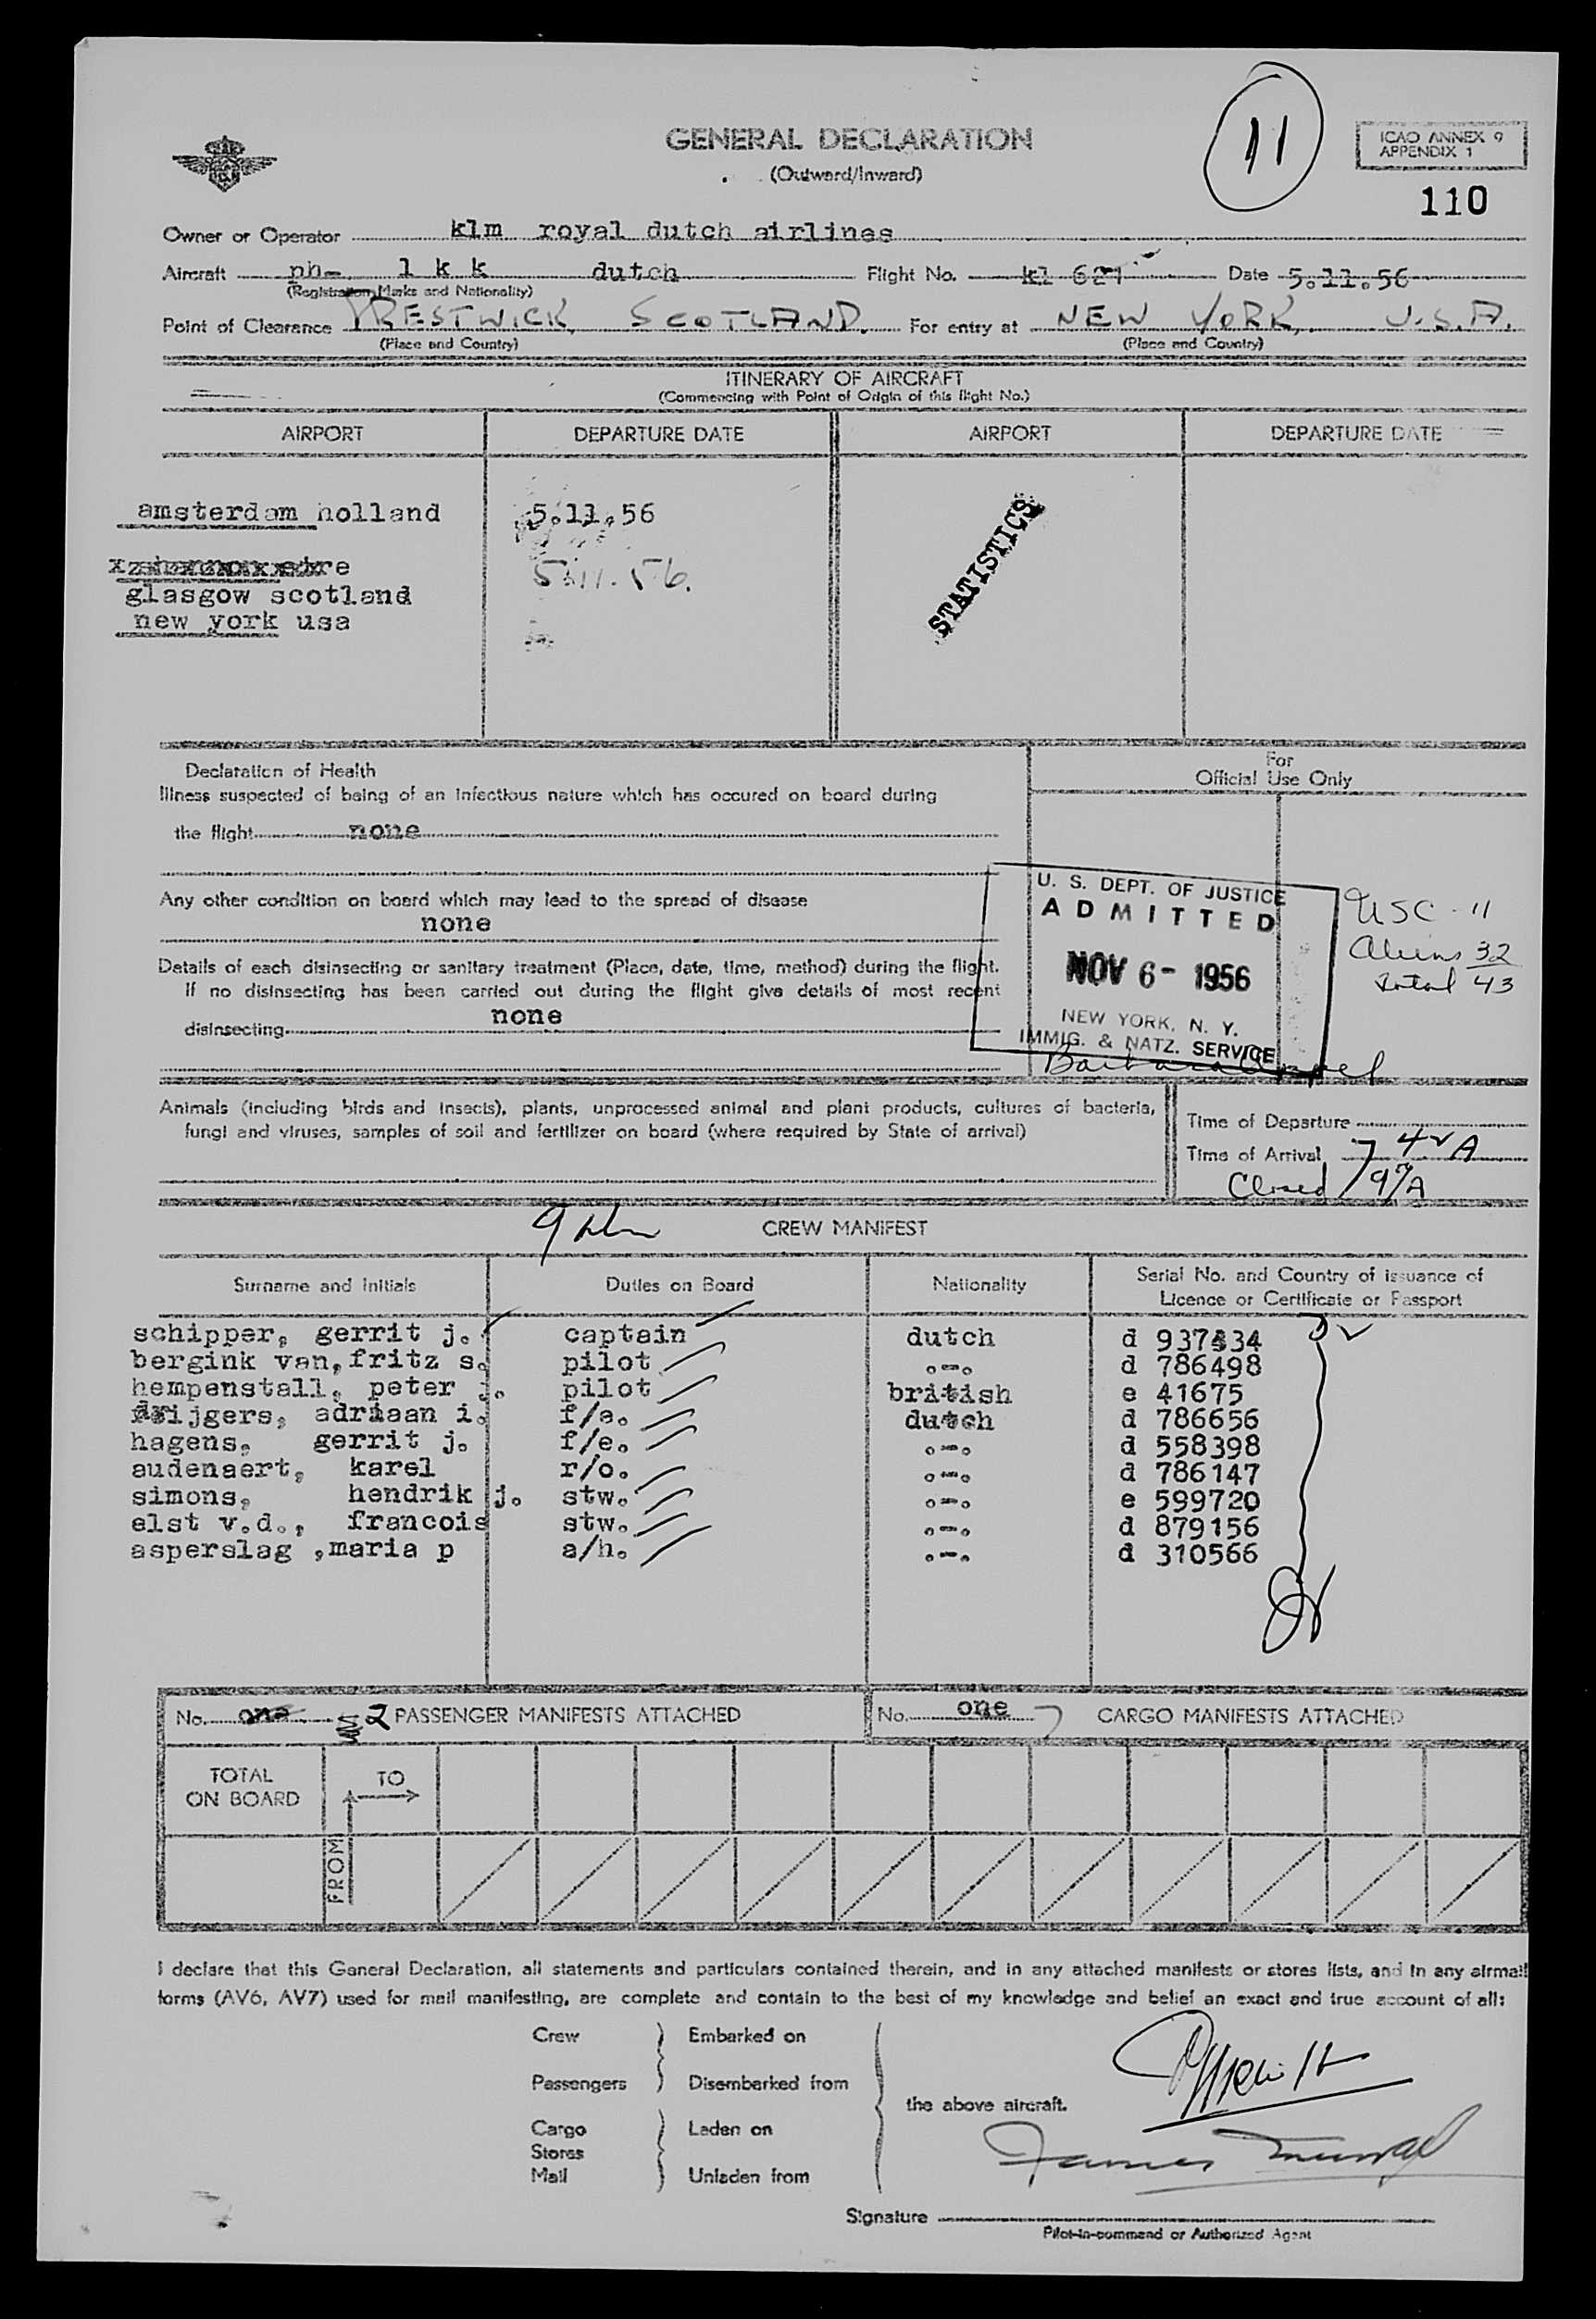 GENERAL DECLARATION
(Outward/Inward)
11
ICAO ANNEX 9
APPENDIX 1
110
Owner or Operator klm royal dutch airlines
Aircraft ph- l k k dutch Flight No. kl 627 Date 5.11.56
(Registration Marks and Nationality)
Point of Clearance PRESTWICK, SCOTLAND. For entry at NEW YORK, U.S.A.
(Place and Country) (Place and Country)
ITINERARY OF AIRCRAFT
(Commencing with Point of Origin of this flight No.)
AIRPORT DEPARTURE DATE AIRPORT DEPARTURE DATE
amsterdam holland 5.11.56
5.11.56.
glasgow scotland
new york usa
STATISTICS
Declaration of Health
For
Official Use Only
Illness suspected of being of an infectious nature which has occured on board during
the flight none
Any other condition on board which may lead to the spread of disease
none
Details of each disinsecting or sanitary treatment (Place, date, time, method) during the flight.
If no disinsecting has been carried out during the flight give details of most recent
disinsecting none
U. S. DEPT. OF JUSTICE
ADMITTED
NOV 6- 1956
NEW YORK, N. Y.
IMMIG. & NATZ. SERVICE
USC - 11
Aliens 32
Total 43
Animals (including birds and insects), plants, unprocessed animal and plant products, cultures of bacteria,
fungi and viruses, samples of soil and fertilizer on board (where required by State of arrival)
Time of Departure
Time of Arrival 7 42 A
Closed
CREW MANIFEST
Surname and Initials Duties on Board Nationality Serial No. and Country of issuance of
Licence or Certificate or Passport
schipper, gerrit j. captain dutch d 937434
bergink van, fritz s. pilot .-. d 786498
hempenstall, peter j. pilot british e 41675
drijgers, adriaan i. f/e. dutch d 786656
hagens, gerrit j. f/e. .-. d 558398
audenaert, karel r/o. .-. d 786147
simons, hendrik j. stw. .-. e 599720
elst v.d., francois stw. .-. d 879156
asperslag ,maria p a/h. .-. d 310566
No. one 2 PASSENGER MANIFESTS ATTACHED No. one CARGO MANIFESTS ATTACHED
TOTAL
ON BOARD
TO
FROM
I declare that this General Declaration, all statements and particulars contained therein, and in any attached manifests or stores lists, and in any airmail
forms (AV6, AV7) used for mail manifesting, are complete and contain to the best of my knowledge and belief an exact and true account of all:
Crew Embarked on
Passengers Disembarked from
the above aircraft.
Cargo Laden on
Stores
Mail Unladen from
Signature
Pilot-in-command or Authorized Agent